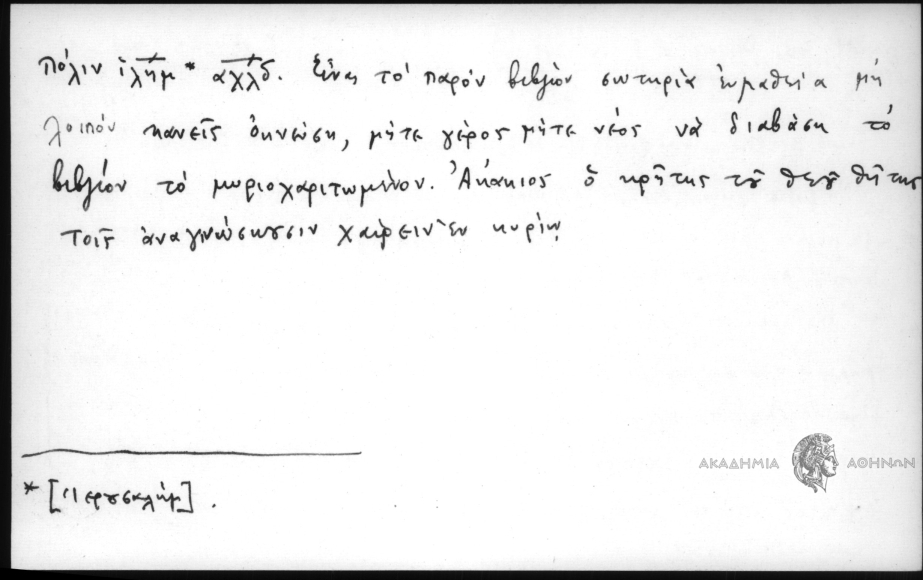 πόλιν ἱλήμ * αχλδ. Εἶναι τὸ παρὸν βιβλίον σωτηρία εὐμάθεια μὴ
λοιπὸν κανεῖς ὀκνώση, μήτε γέρος μήτε νέος νὰ διαβάση τὸ
βιβλίον τὸ μυριοχαριτωμένον. Ἀκάκιος ὁ κρῆτης τοῦ θεοῦ θῆτης
τοῖς ἀναγνώσουσιν χαίρειν ἐν κυρίῳ
* [Ἱερουσαλήμ].
ΑΚΑΔΗΜΙΑ ΑΘΗΝΩΝ